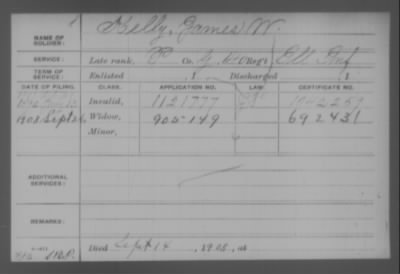 Kelly, James W.
NAME OF SOLDIER:
SERVICE: Late rank, Co. Reg't Ill Inf
TERM OF SERVICE: Enlisted , 1 Discharged , 1
DATE OF FILING. CLASS. APPLICATION NO. LAW. CERTIFICATE NO.
Invalid, 1121777
1908 Sept 26, Widow, 905149 692431
Minor,
ADDITIONAL SERVICES:
REMARKS:
Died Sept 14, 1908, at